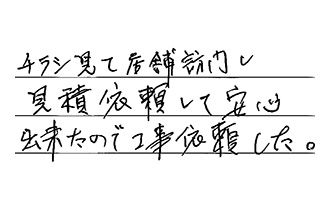 チラシ見て店舗訪問し
見積依頼して安心
出来たので工事依頼した。